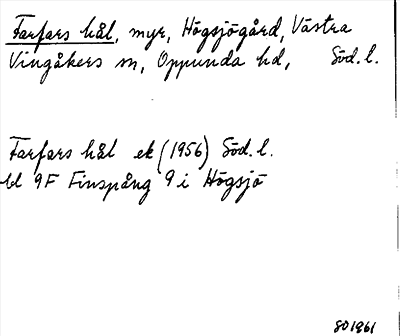 Farfars hål, myr, Högsjögård, Västra
Vingåkers sn, Oppunda hd, Söd.l.
Farfars hål ek (1956) Söd.l.
bl 9F Finspång 9 i Högsjö
SO 1961